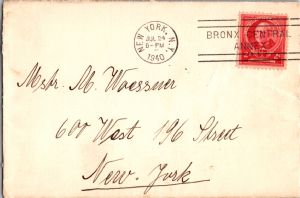 NEW YORK, N.Y.
JUL 24
6-PM
1940
BRONX CENTRAL
ANNEX
Mstr. M. Waessner
600 West 196 Street
New York